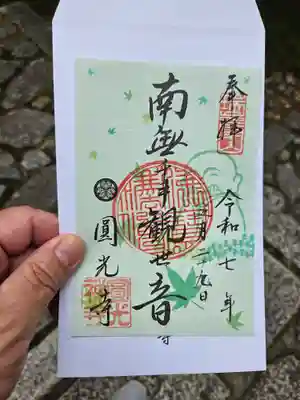 奉拝
令和七年
月二九日
南無千手観世音
圓光寺